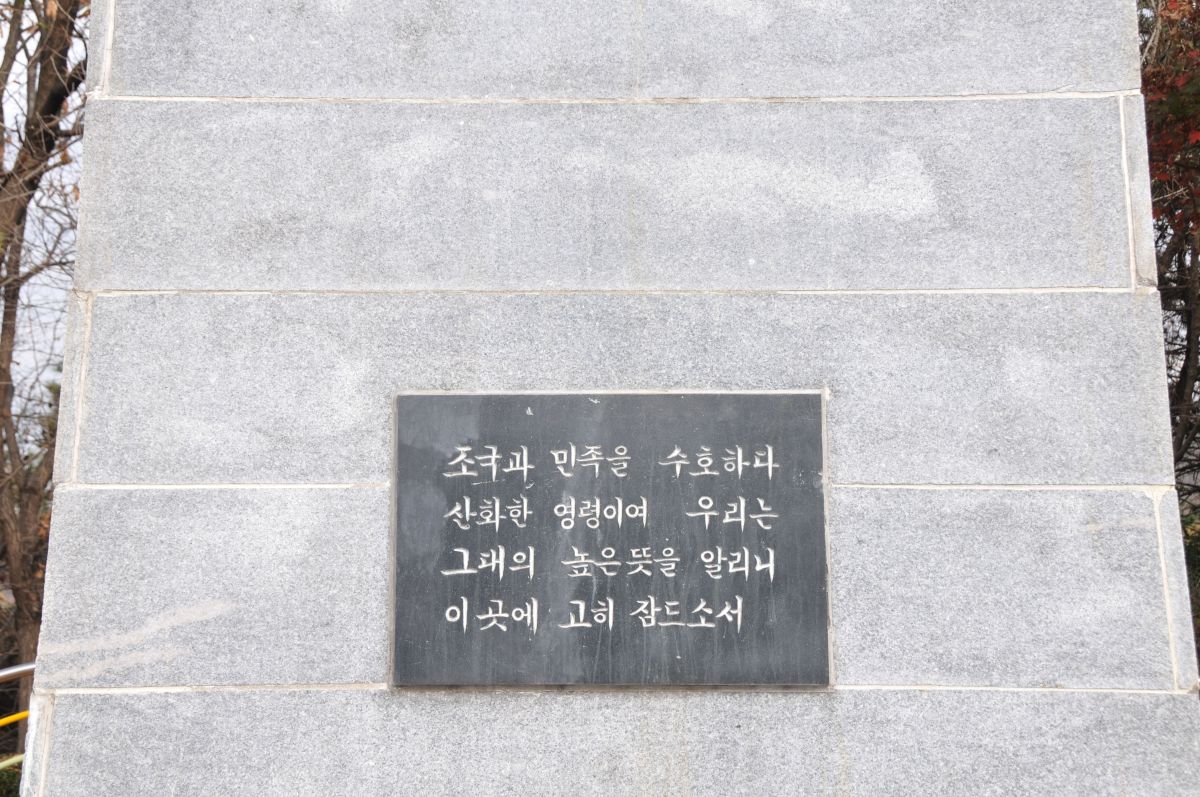 조국과 민족을 수호하다
산화한 영령이여 우리는
그대의 높은 뜻을 알리니
이 곳에 고히 잠드소서